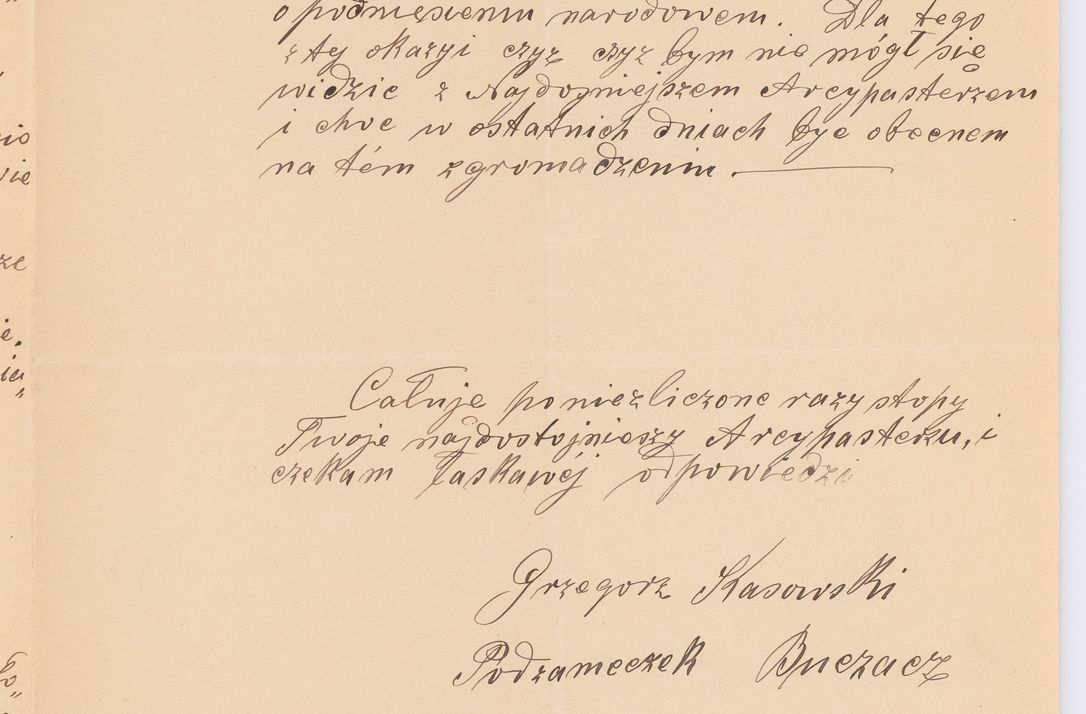 o podniesieniu narodowem. Dla tego
z tej okazyi czyż czyż bym nie mógł się
widzic z Najdosniejszem Arcypasterzem
i chce w ostatnich dniach bye obecnem
na tém zgromadzeniu.
Całuje poniezliczone razy stopy
Twoje najdostojniejszy Arcypasterzu, i
czekam łaskawéj odpowiedzi
Grzegorz Kasowski
Podzameczek Buczacz